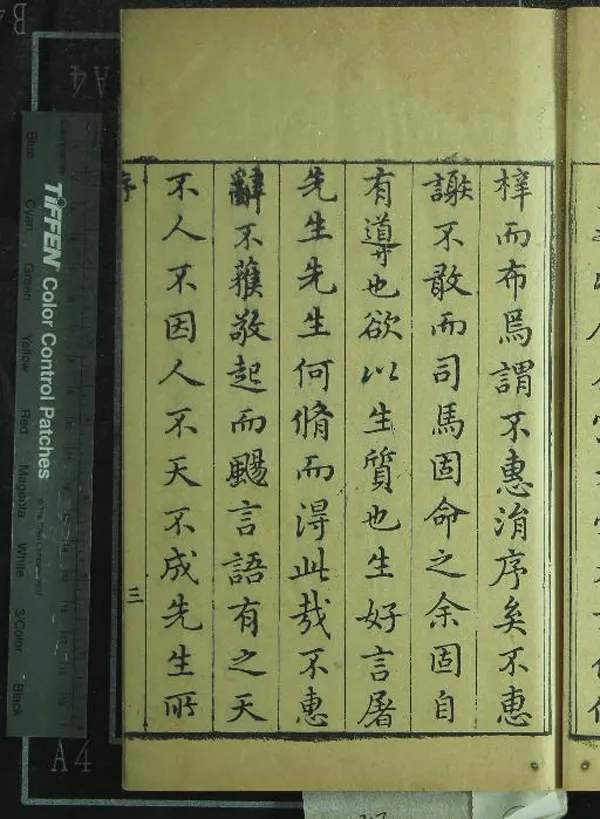 梓而布焉謂不惠㳙序矣不惠
謝不敢而司馬固命之余固自
有導也欲以生質也生好言屠
先生先生何脩而淂此㦲不惠
辭不獲敬起而颺言語有之天
不人不因人不天不成先生所
序
三
TIFFEN Color Control Patches
Blue
Cyan
Green
Yellow
Red
Magenta
White
3/Color
Black
A4
A4